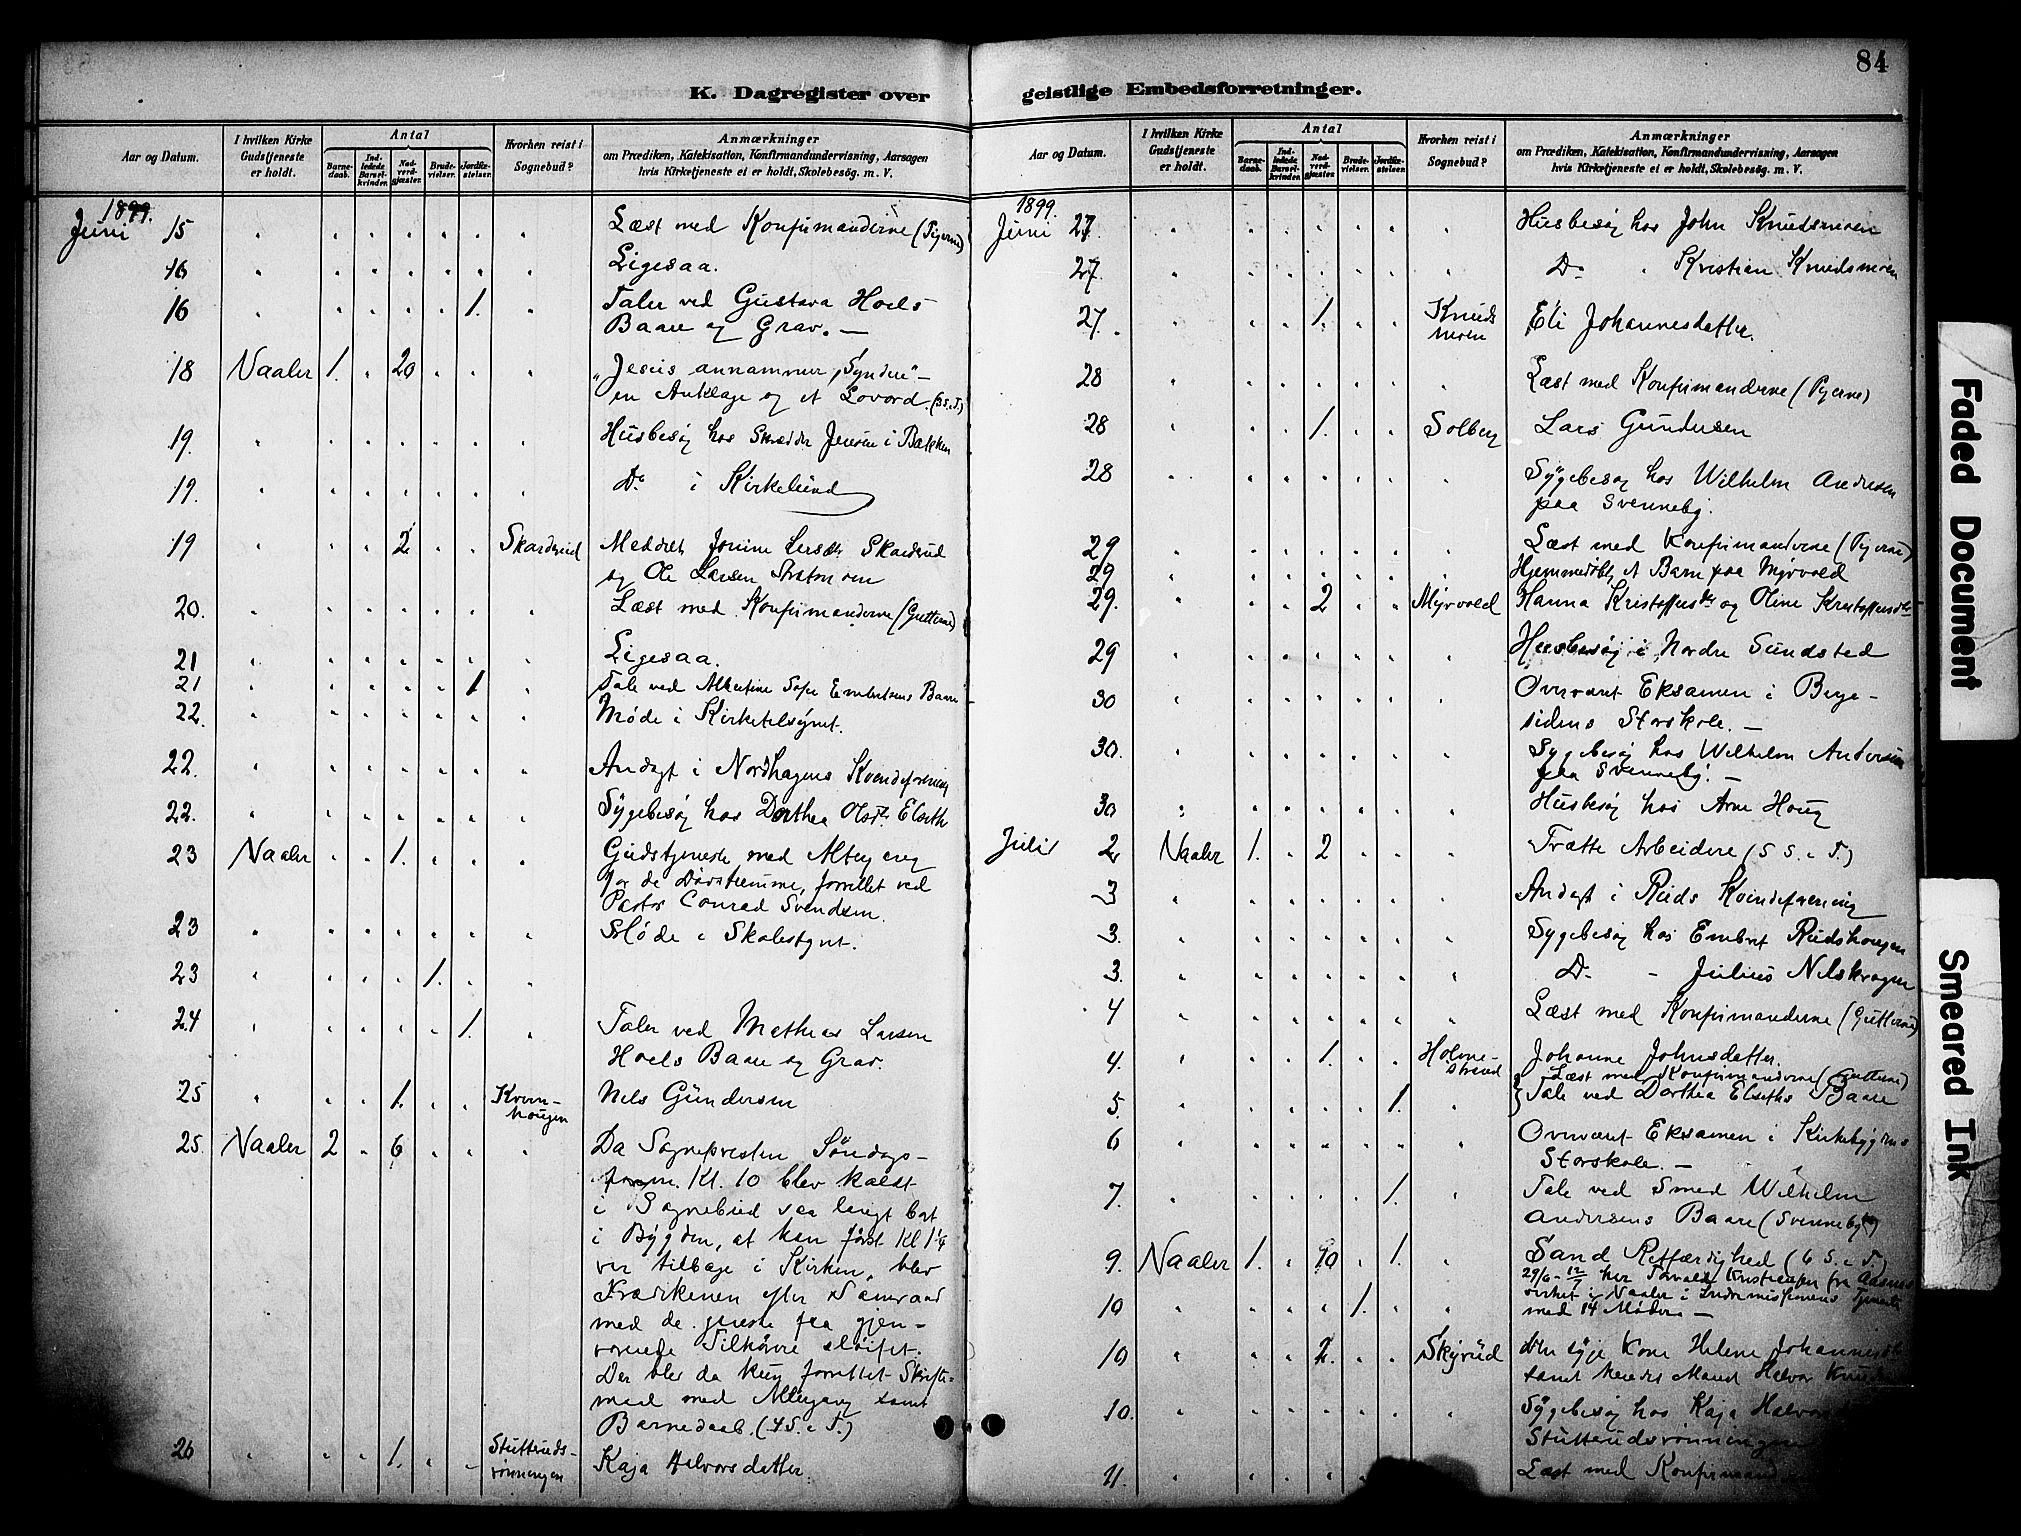 84
K. Dagregister over geistlige Embedsforretninger.
Aar og Datum.
I hvilken Kirke Gudstjeneste er holdt.
Antal
Barnedaab.
Indledede Barselkvinder.
Nadverdgjæster.
Brudevielser.
Jordfæstelser.
Hvorhen reist i Sognebud?
Anmærkninger
om Prædiken, Katekisation, Konfirmandundervisning, Aarsagen
hvis Kirketjeneste ei er holdt, Skolebesøg. m. V.
1899.
Juni 15 Læst med Konfirmanderne (Pigerne)
16 Ligesaa.
16 1. Taler ved Gustava Hoels
Baare og Grav. —
18 Naaler 1. 20 "Jesus annammer Syndere" —
en Anklage og et Lovord. (3 S. e. T.)
19. Husbesøg hos Skrædder Jensen i Bakken
19. Do i Kirkelund
19 2 Skarderud Meddelt Jonine Larsdtr Skarderud
og Ole Larsen
20. Læst med Konfirmanderne (Gutterne)
21 Ligesaa.
21 1 Tale ved Albertine Sofie Embretsens Baare
22. Møde i Kirketilsynet.
22. Andagt i Nordhagens Kvindeforening
22. Sygebesøg hos Dorthea Olsdtr Elseth
23 Naaler 1. Gudstjeneste med Altergang
for de Døvstumme, forrettet ved
Pastor Conrad Svendsen.
23 Møde i Skolestyret.
23 1.
24 1. Taler ved Mathias Larsen
Hoels Baare og Grav.
25 1. Kvern-
haugen Nils Gundersen
25. Naaler 2 6 Da Sognepresten Søndags-
form. Kl. 10 blev kaldt
i Sognebud saa langt bort
i Bygden, at han først Kl 1¼
var tilbage i Kirken, blev
Prædikenen efter Samraad
med de fleste paa gjen-
værende Tilhørere sløifet.
Der blev da kun forrettet Skrifte-
maal med Altergang samt
Barnedaab. (4 S. e. T.)
26 1. Stutteruds-
rønningen Kaja Halvorsdatter.
Aar og Datum.
I hvilken Kirke Gudstjeneste er holdt.
Antal
Barnedaab.
Indledede Barselkvinder.
Nadverdgjæster.
Brudevielser.
Jordfæstelser.
Hvorhen reist i Sognebud?
Anmærkninger
om Prædiken, Katekisation, Konfirmandundervisning, Aarsagen
hvis Kirketjeneste ei er holdt, Skolebesøg. m. V.
1899.
Juni 27. Husbesøg hos John Knudsmoen
27. Do " Kristian Knudsmoen
27. 1. Knuds
moen Eli Johannesdatter.
28 Læst med Konfirmanderne (Pigerne)
28 1. Solberg Lars Gundersen
28 Sygebesøg hos Wilhelm Andersen
paa Svenneby.
29 Læst med Konfirmanderne (Pigerne)
29 Hjemmedøbt et Barn paa Myrvold
29. 2 Myrvold Hanna Kristoffersdtr og Oline Kristoffersdtr
29 Husbesøg i Nordre Sundsted
30 Overværet Eksamen i Berge-
sidens Storskole. —
30. Sygebesøg hos Wilhelm Andersen
paa Svenneby. —
30 Husbesøg hos Arne Houg
Juli 2 Naaler 1. 2 Trætte Arbeidere (5 S. e. T.)
3 Andagt i Ruds Kvindeforening
3. Sygebesøg hos Embret Rudshaugen
3. Do - Julius Nilskrogen
4 Læst med Konfirmanderne (Gutterne)
4. 1. Holme-
strand Johanne Johnsdatter.
Læst med Konfirmanderne (Gutterne)
5. 1. Tale ved Dorthea Elseths Baare
6 Overværet Eksamen i Kirkebygdens
Storskole. —
7. 1. Tale ved Smed Wilhelm
Andersens Baare (Svenneby)
9. Naaler 1. 10 1. Sand Retfærdighed (6 S. e. T.)
29/6 - 12/7 har Torvald Kristensen fra
virket i Naaler i Indremissionens Tjeneste
10 1. med 14 Møder. —
10 2. Skyrud den syge Kone Helene Johannesdtr
samt hendes Mand Halvor
10. Sygebesøg hos Kaja
Stutterudsrønningen
11. Læst med
Faded Document
Smeared Ink